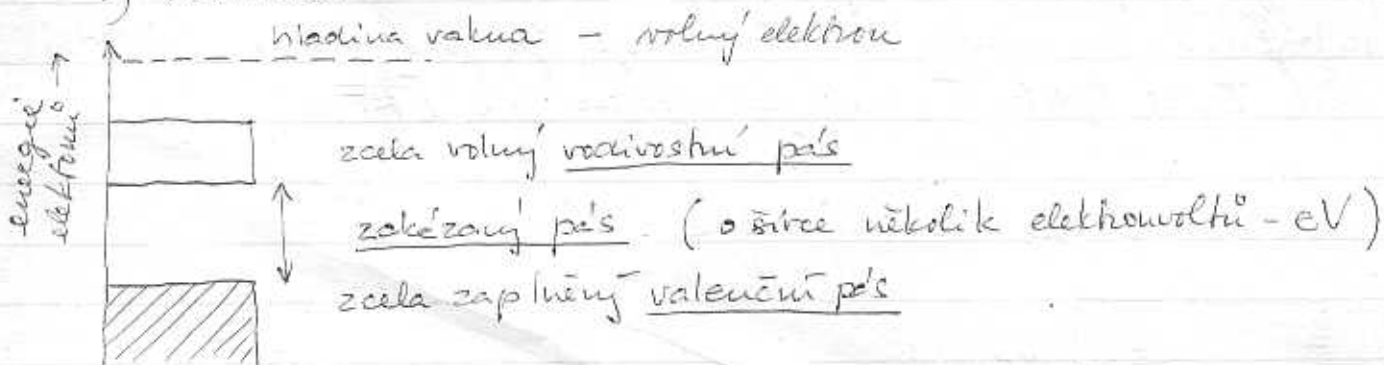 hladina vakua - volný elektron
energie
elektronů →
zcela volný vodivostní pás
zakázaný pás. (o šířce několik elektronvoltů - eV)
zcela zaplněný valenční pás